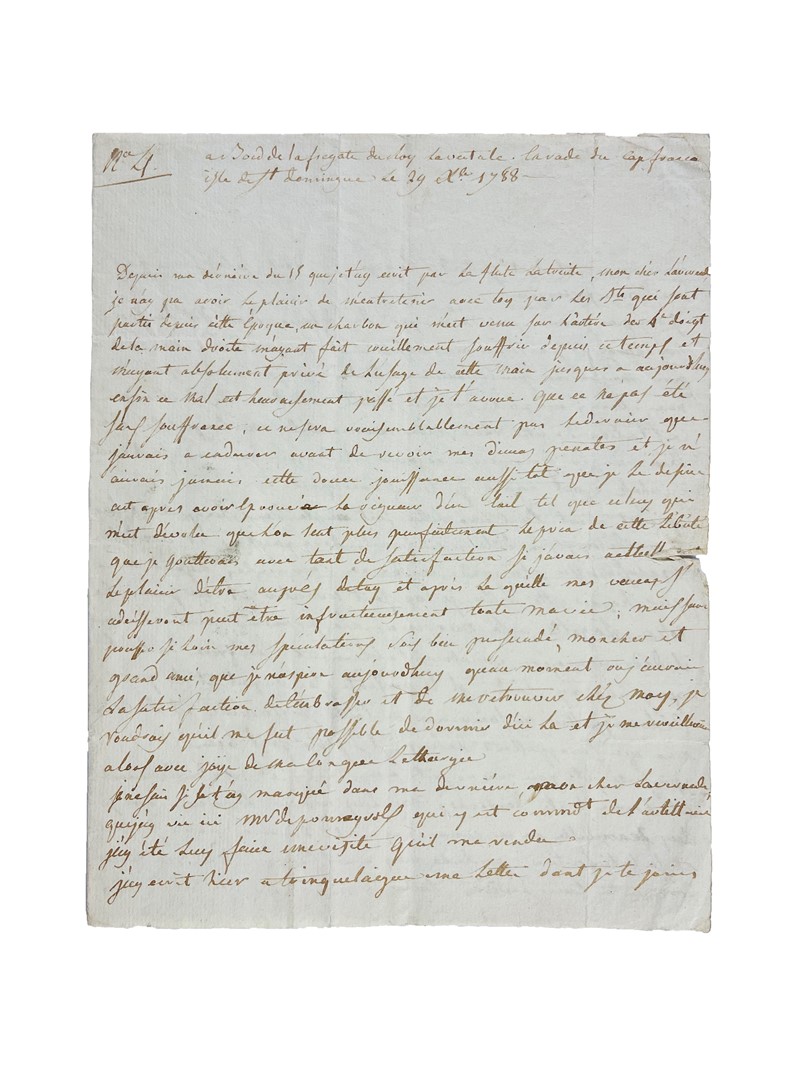 N.ce 4.
a Bord de la fregate du Roy la vestale. en rade du Cap francs
isle de St domingue Le 29 Xbre 1788
Depuis ma derniere du 15 que je t'ay ecrit par La flute La truite, mon cher Laverned
je n'ay pu avoir Le plaisir de m'entretenir avec toy par Les Bts qui sont
partis depuis cette Epoque, un charbon qui m'est venu sur L'artere du 4e doigt
de la main droite m'ayant fait cruellement souffrir depuis ce temps et
m'ayant absolument privé de L'usage de cette main jusques a aujourdhuy
enfin ce mal est heureusement passé et je t'avoue que ce n'a pas été
sans souffrance, ce ne sera vraisemblablement pas Le dernier que
j'aurais a endurer avant de revoir mes dieux penates et je n'
aurais jamais cette douce jouissance aussi tot que je Le desire
c'est apres avoir éprouvé La rigueur d'un Exil tel que celuy qui
m'est devolu que Lon sent plus parfaitement Le prix de cette Liberté
que je goutterais avec tant de satisfaction si j'avais
Le plaisir d'être auprès de toy et après La quelle mes voeux s'
adresseront peut être infructueusement toute ma vie; mais sans
pousser si loin mes speculations sois bien persuadé, mon cher et
grand ami, que je n'aspire aujourdhuy qu'au moment ou j'aurai
La satisfaction de t'embrasser et de me retrouver chez moy, je
voudrais qu'il me fut possible de dormir d'ici La et je me reveillerais
alors avec joye de ma longue Lethargie
je ne sais si je t'ay marqué dans ma derniere mon cher Lavernede,
que j'ay vu ici Mr de pourcyrols qui y est commdt de L'artillerie
j'ay été Luy faire une visite qu'il m'a rendu
j'ay ecrit hier a trinquelaigue une Lettre dont je te joins